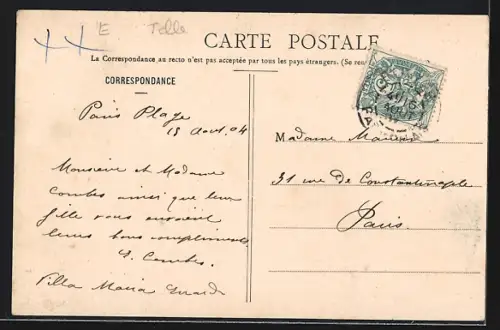 E Tolle
CARTE POSTALE
La Correspondance au recto n'est pas acceptée par tous les pays étrangers. (Se ren
CORRESPONDANCE
Paris Plage
15 Aout. 04
Monsieur et Madame
Combes ainsi que leur
fille vous envoient
leurs bons compliments
Combes.
Villa Maria
Madame
31 rue De Constantinople
Paris